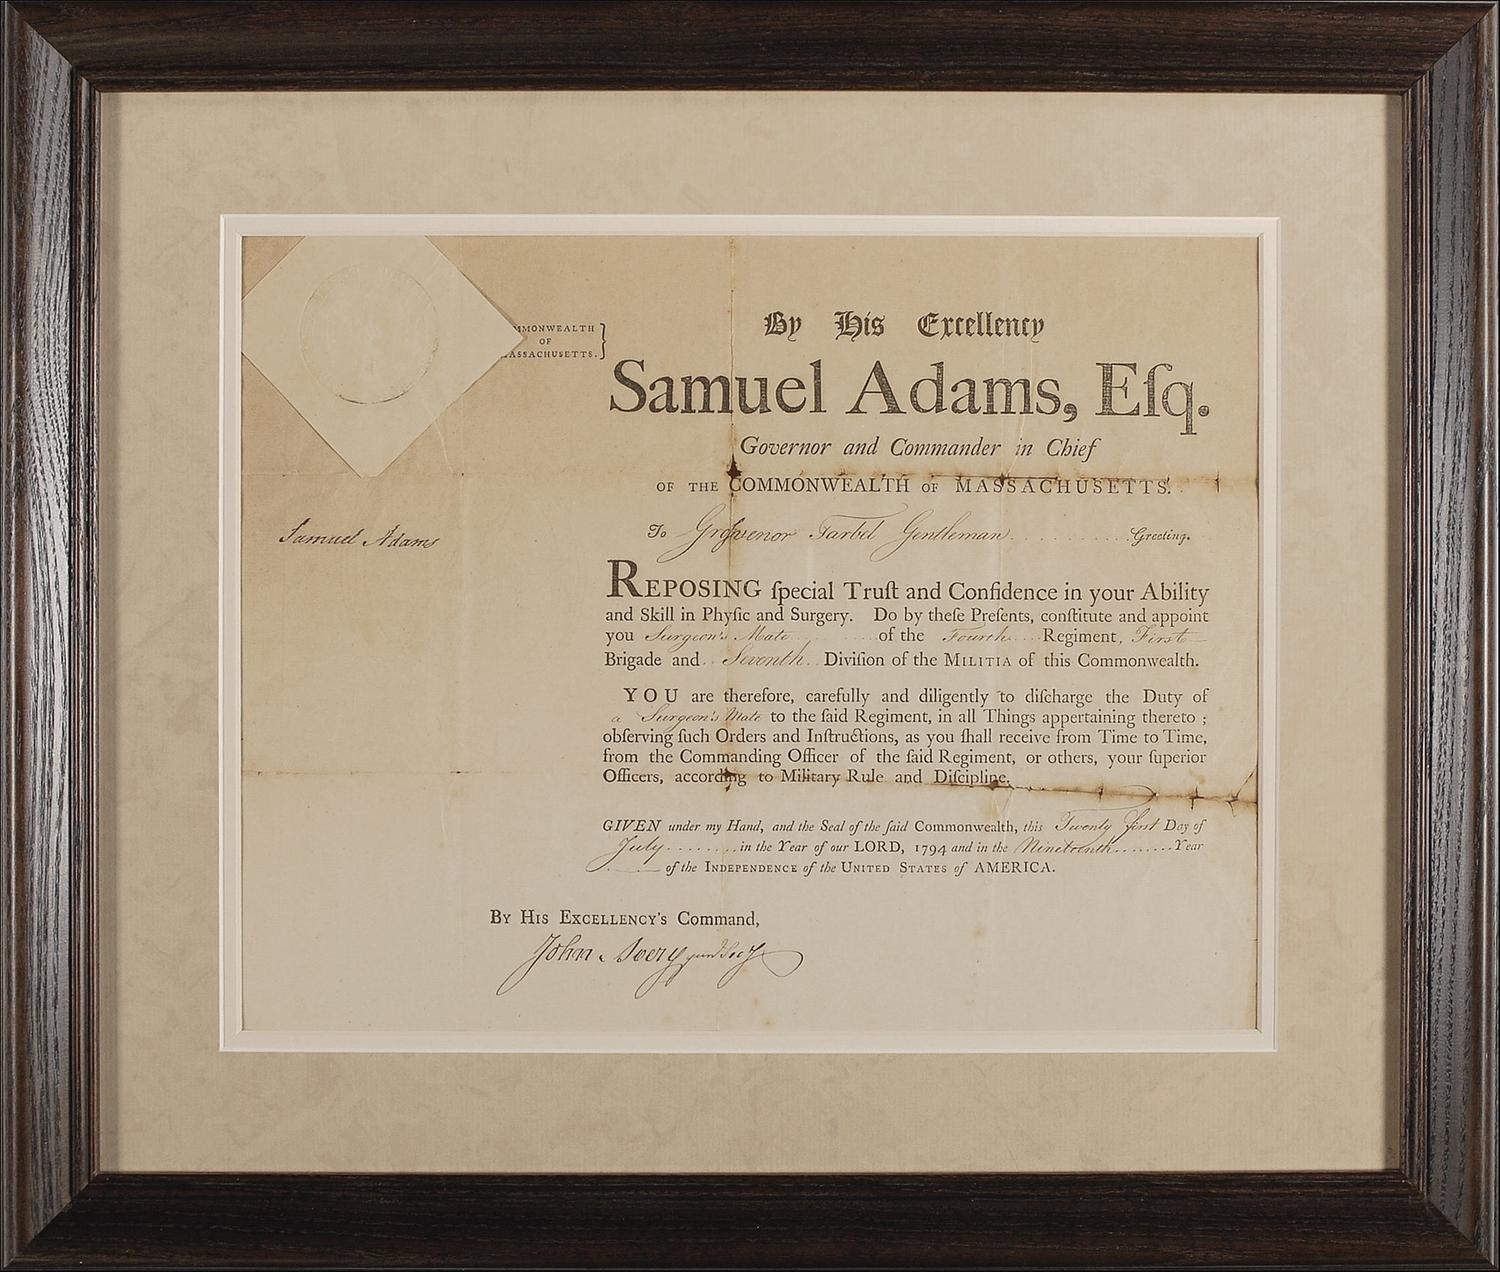 MMONWEALTH
OF
ASSACHUSETTS.
By His Excellency
Samuel Adams, Eſq.
Governor and Commander in Chief
OF THE COMMONWEALTH OF MASSACHUSETTS.
Samuel Adams
To Groſvenor Tarbel Gentleman............Greeting.
REPOSING ſpecial Truſt and Confidence in your Ability
and Skill in Phyſic and Surgery. Do by theſe Preſents, conſtitute and appoint
you Surgeon's Mate..........of the Fourth....Regiment, First
Brigade and..Seventh..Diviſion of the MILITIA of this Commonwealth.
YOU are therefore, carefully and diligently to diſcharge the Duty of
a Surgeon's Mate to the ſaid Regiment, in all Things appertaining thereto ;
obſerving ſuch Orders and Inſtructions, as you ſhall receive from Time to Time,
from the Commanding Officer of the ſaid Regiment, or others, your ſuperior
Officers, according to Military Rule and Diſcipline.
GIVEN under my Hand, and the Seal of the ſaid Commonwealth, this Twenty first Day of
July........in the Year of our LORD, 1794 and in the Nineteenth........Year
of the INDEPENDENCE of the UNITED STATES of AMERICA.
BY HIS EXCELLENCY'S Command,
John Avery junr Secy